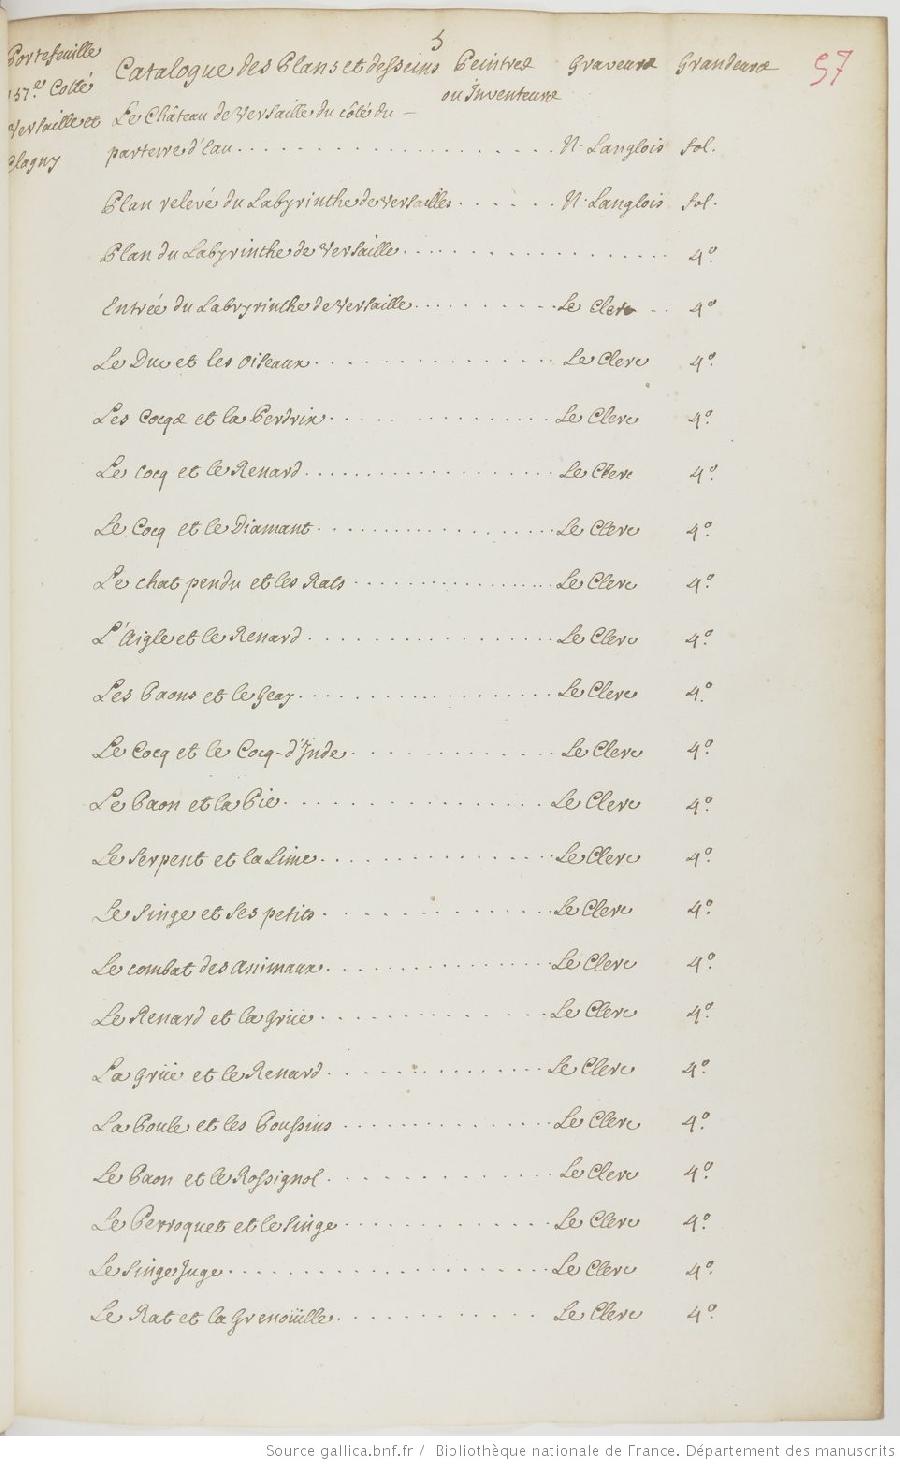 5
57
Portefeuille
157.e Cotté
Versaille et
Clagny
Catalogue des Plans et desseins Peintres Graveurs Grandeurs
ou Inventeurs
Le Château de Versaille du côté du —
parterre d'eau . . . . . N. Langlois fol.
Plan relevé du Labyrinthe de Versailles . . . . . N. Langlois fol.
Plan du Labyrinthe de Versaille . . . . . 4.o
Entrée du Labyrinthe de Versaille . . . . . Le Clerc . . 4.o
Le Duc et les Oiseaux . . . . . Le Clerc 4.o
Les Cocqs et la Perdrix . . . . . Le Clerc 4.o
Le Cocq et le Renard . . . . . Le Clerc 4.o
Le Cocq et le Diamant . . . . . Le Clerc 4.o
Le chat pendu et les Rats . . . . . Le Clerc 4.o
L'Aigle et le Renard . . . . . Le Clerc 4.o
Les Paons et le Geay . . . . . Le Clerc 4.o
Le Cocq et le Cocq-d'Inde . . . . . Le Clerc 4.o
Le Paon et la Pie . . . . . Le Clerc 4.o
Le Serpent et la Lime . . . . . Le Clerc 4.o
Le Singe et ses petits . . . . . Le Clerc 4.o
Le combat des Animaux . . . . . Le Clerc 4.o
Le Renard et la Grüe . . . . . Le Clerc 4.o
La Grüe et le Renard . . . . . Le Clerc 4.o
La Poule et les Poussins . . . . . Le Clerc 4.o
Le Paon et le Rossignol . . . . . Le Clerc 4.o
Le Perroquet et le Singe . . . . . Le Clerc 4.o
Le Singe Juge . . . . . Le Clerc 4.o
Le Rat et la Grenoüille . . . . . Le Clerc 4.o
Source gallica.bnf.fr / Bibliothèque nationale de France. Département des manuscrits